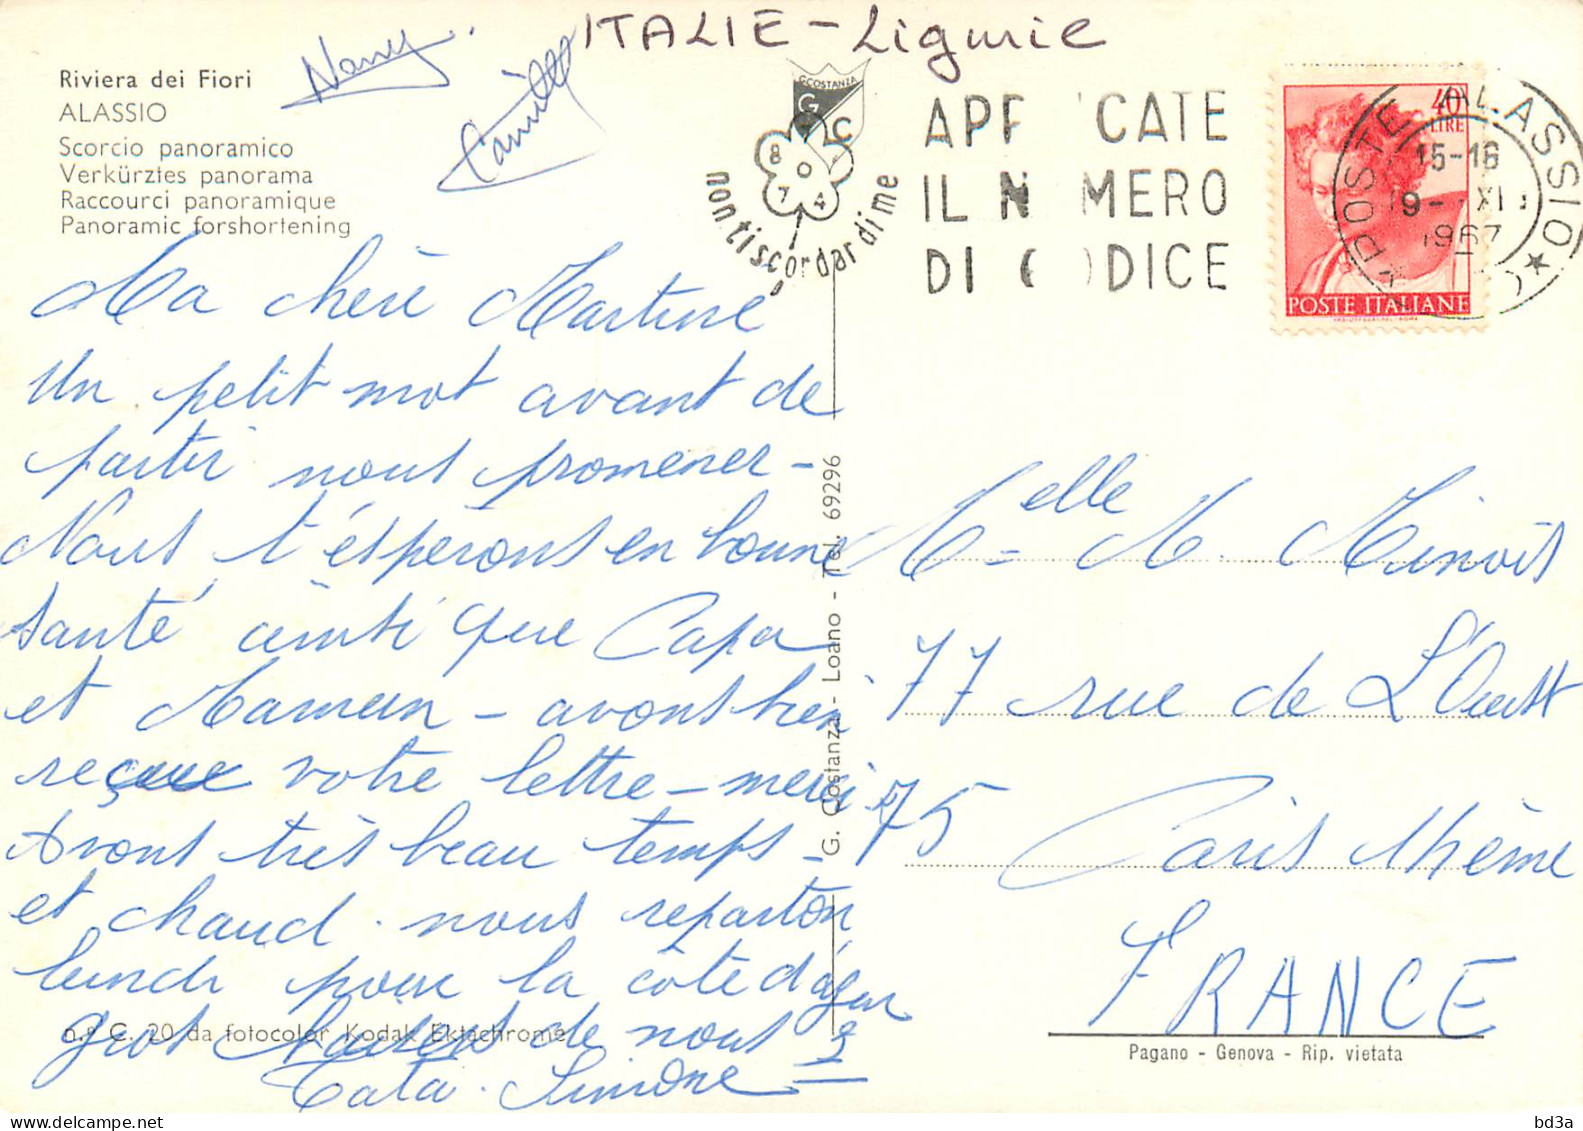 ITALIE - Ligurie
Nany
Camille
Riviera dei Fiori
ALASSIO
Scorcio panoramico
Verkürztes panorama
Raccourci panoramique
Panoramic forshortening
G. COSTANZA
G C
8 0 7 4
nontiscordardime
APP ICATE
IL N MERO
DI C DICE
40
LIRE
POSTE ITALIANE
POSTE ALASSIO
15-16
9- XI
1967
Ma chère Martine
Un petit mot avant de
partir nous promener -
Nous t'espérons en bonne
santé ainsi que Papa
et Maman - avons bien
reçue votre lettre - merci
Avons très beau temps -
et chaud. nous repartons
lundi pour la côte d'azur
gros baisers de nous 3
Tata. Simone
n.º C. 20 da fotocolor Kodak Ektachrome
G. Costanza - Loano - Tel. 69296
Melle M. Minois
77 rue de L'Ouest
75 Paris 14ème
FRANCE
Pagano - Genova - Rip. vietata
bd3a